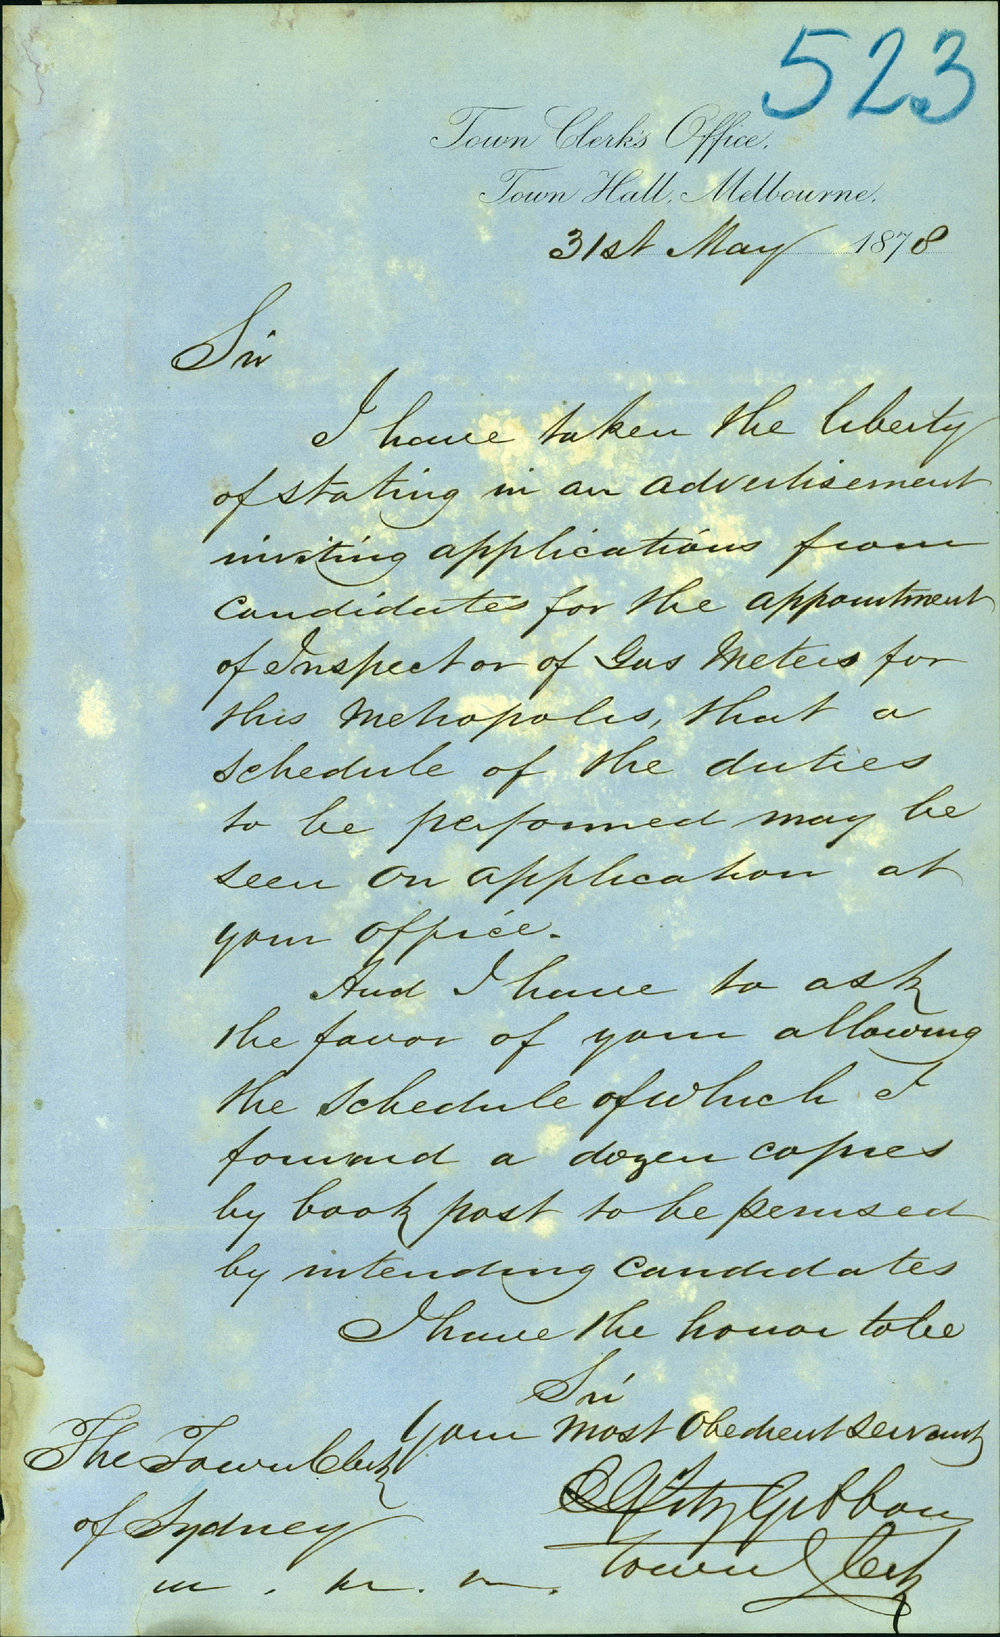 523
Town Clerk's Office,
Town Hall, Melbourne,
31st May 1878
Sir
I have taken the liberty
of stating in an advertisement
inviting applications from
candidates for the appointment
of Inspector of Gas Meters for
this Metropolis, that a
schedule of the duties
to be performed may be
seen on application at
your office.
And I have to ask
the favor of your allowing
the schedule of which I
forward a dozen copies
by book post to be perused
by intending candidates
I have the honor to be
Sir
Your most obedient servant
The Town Clerk
E G FitzGibbon
of Sydney
Town Clerk